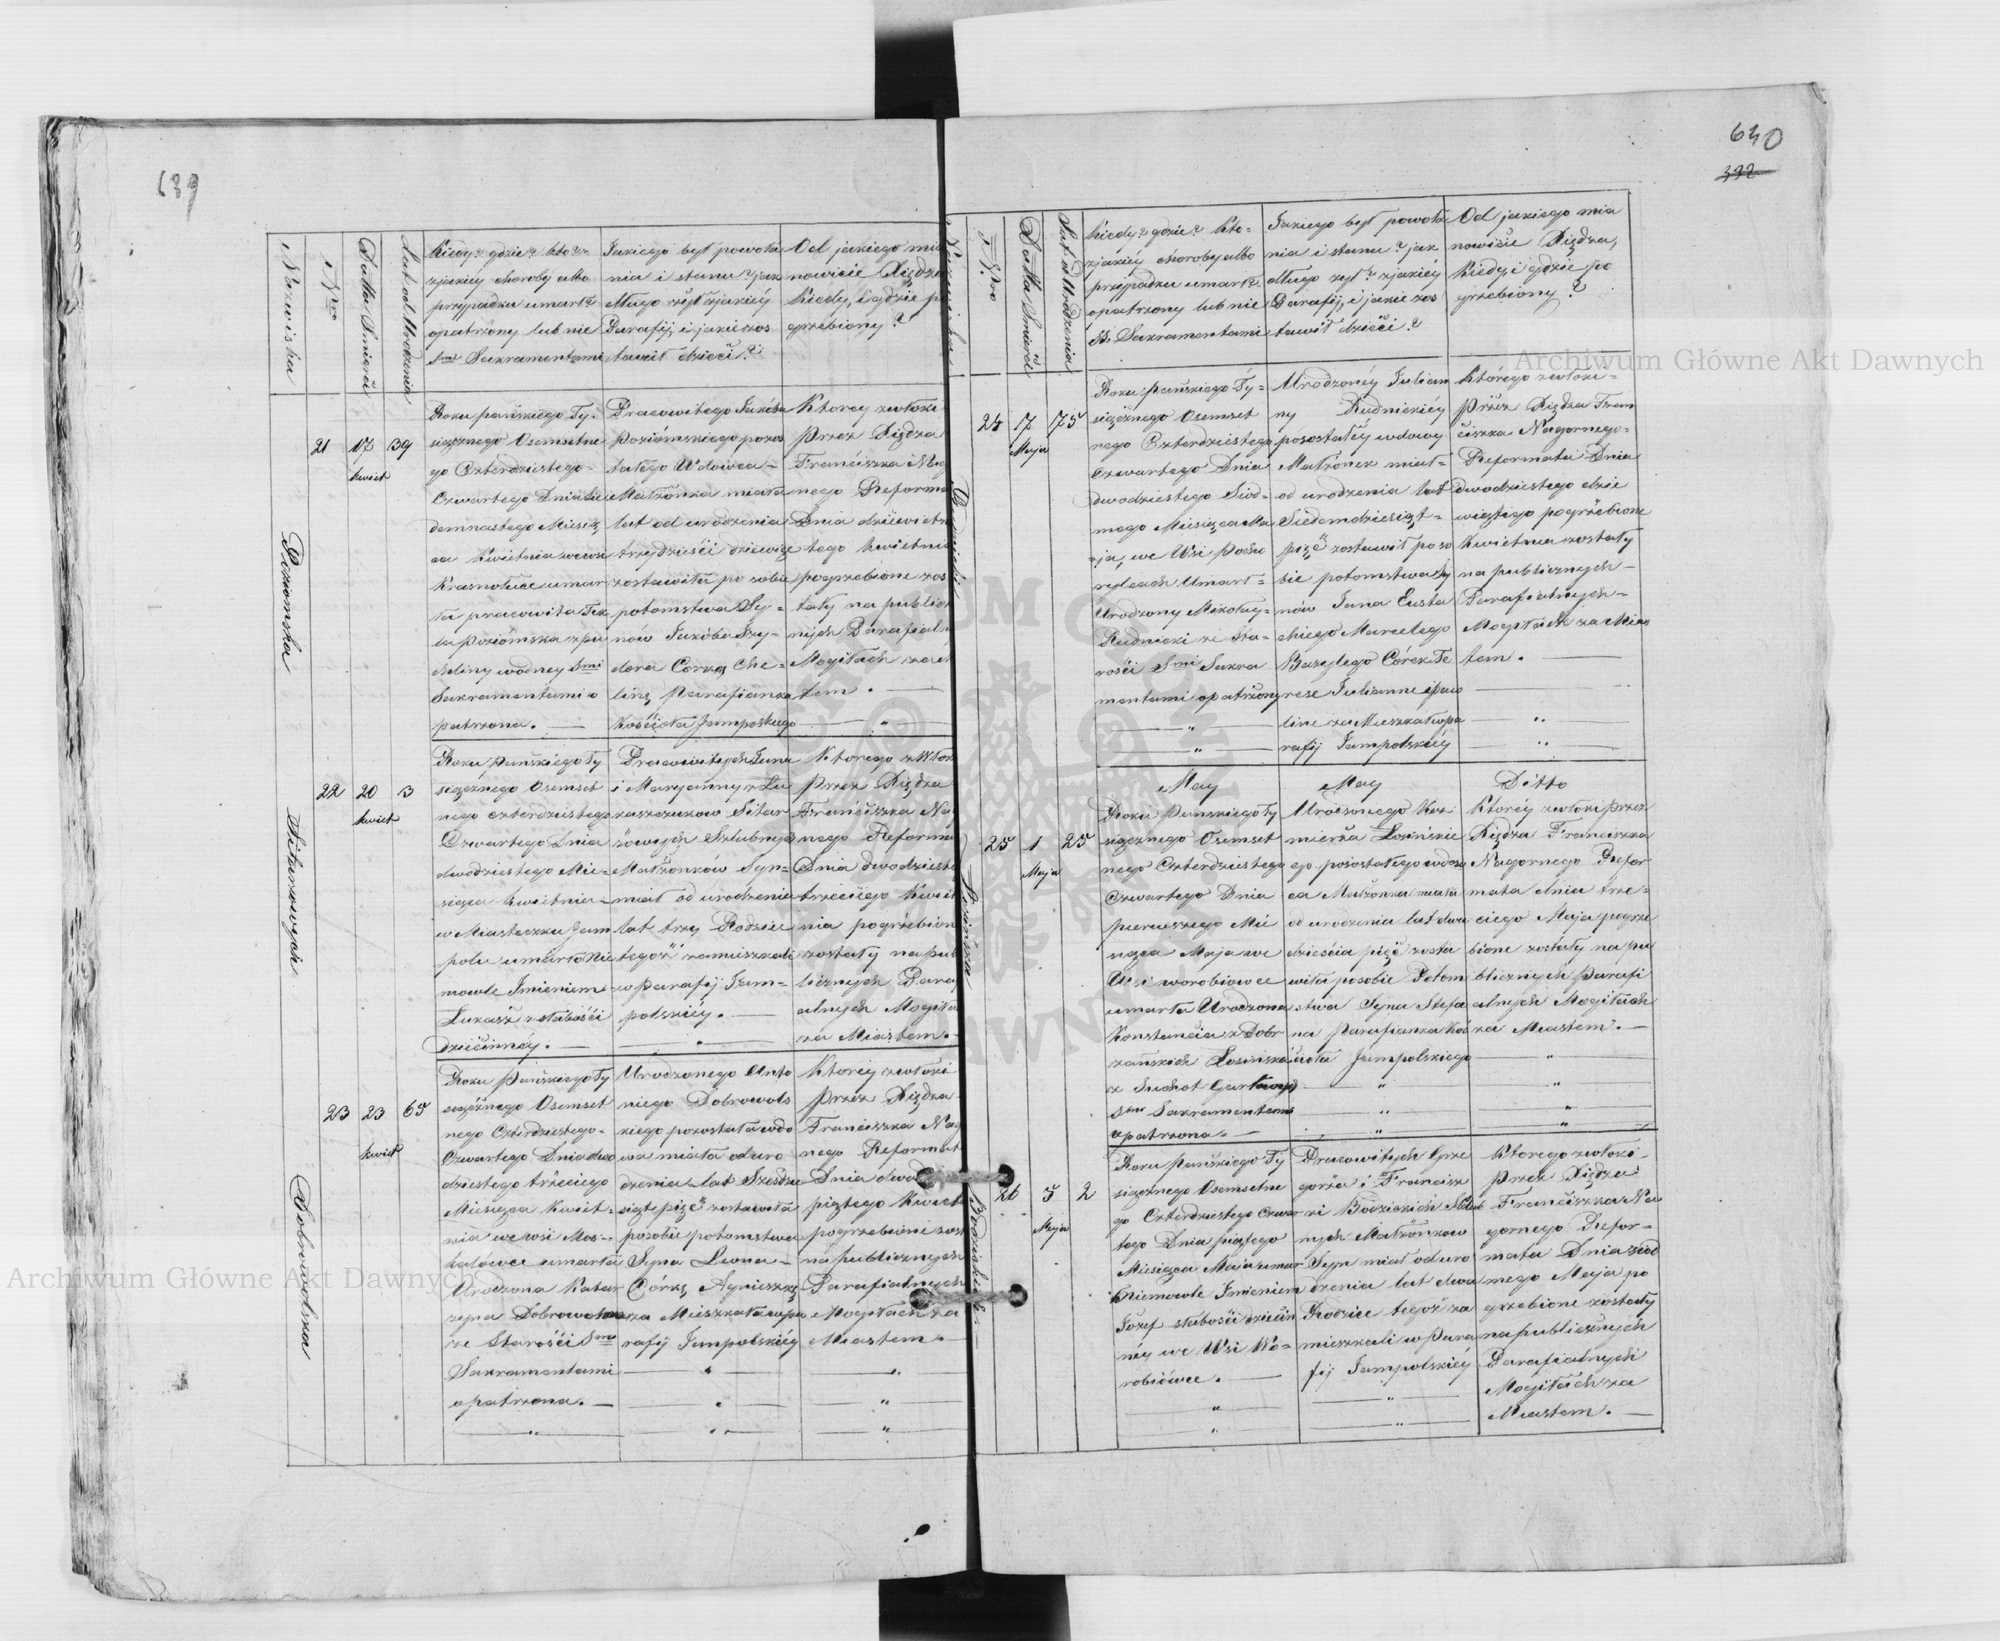 639
Nazwiska
Nro
Datta Śmierci
Lat od Urodzenia
Kiedy? gdzie? kto? z
zjakiéy choroby albo
przypadku umarł?
opatrzony lub nie
Smi Sakramentami
Jakiego był powoła
nia i stanu? jak
długo żył? zjakiéy
Parafij, i jakie zos
tawił dzieci?
Od jakiego mia
nowicie Xiędza
Kiedy, i gdzie po
grzebiony?
Poziomska
21
17
kwiet
39
Roku pańskiego Ty-
siącznego Osemsetne
go Czterdziestego-
Czwartego Dnia Sie
demnastego Miesią
ca Kwietnia we wsi
Krasnołuce umar
ła pracowita Tek
la Poziomska zpu
chliny wodney Smi
Sakramentami o
patrzona.
Pracowitego Jakóba
Poziómskiego pozos
tałego Wdowca-
Małżonka miała
lat od urodzenia
trzydzieści dziewięć
zostawiła po sobie
potomstwa Sy-
nów Jakóba Izy-
dora Córką Che-
linę Parafianka
Kościoła Jampolskiego
Ktorey zwłoki
Przéz Xiędza
Franciszka Nag
nego Reforma
Dnia dziewietn
tego kwietnia
pogrzebione zos
tały na public
nych Parafialn
Mogiłach za
tem.
Sitarzowych
22
20
kwiet
3
Roku Pańskiego Ty
siącznego Osemset
nego czterdziestego
Czwartego Dnia
dwódziestego Mie-
siąca kwietnia-
w Miasteczku Jam
polu umarło Nie
mowle Imieniem
Łukasz z słabości
dziécinnéy.
Pracowitych Jana
i Maryanny z Łu
kaszczukow Sitar
zówych Szlubnych
Małżonków Syn-
miał od urodzenia
lat trzy Rodzice
tegóż zamieszkali
w Parafij Jam-
polskiéy.
Ktorego zwłok
Przez Xiędza
Franciszka Na
nego Reforma
Dnia dwodzieste
trzeciego kwiet
nia pogrzebion
zostały na pub
licznych Para
alnych Mogiła
za Miastem.
Dobrowolska
23
23
kwiet
65
Roku Pańskiego Ty
siącznego Osemset
nego Czterdziestego-
Czwartego Dnia dwó
dziestego trzeciego
Miesiąca Kwiet-
nia we wsi Mos-
kalówce umarła
Urodzona Katar
zyna Dobrowolska
ze Starości Smi
Sakramentami
opatrzona.
Urodzonego Anto
niego Dobrowols
kiego pozostała wdo
wa miała od uro
dzenia lat Sześdzie
siąt pięć zostawiła
posobie potomstwa
Syna Leona-
Córkę Agnieszkę
za Mieszkała w pa
rafij Jampolskiéy
Ktoréy zwłoki
Przéz Xiędza
Franciszka Nag
nego Reformat
Dnia dwodz
piątego Kwiet
pogrzebione zost
na publicznych
Parafialnych
Mogiłach za
Miastem.
640
332
Nro
Datta Śmierci
Lat od Urodzenia
Kiedy? gdzie? Kto-
zjakiey choroby albo
przypadku umarł?
opatrzony lub nie
SS. Sakramentami
Jakiego był powoła
nia i stanu? jak
długo żył? zjakiéy
Parafij, i jakie zos
tawił dzieci?
Od jakiego mia
nowicie Xiędza,
Kiedy i gdzie po
grzebiony?
Rudnicki
24
17
Maja
75
Roku Pańskiego Ty-
siącznego Osemset
nego Czterdziestego
Czwartego Dnia
dwodziestego Siód-
mego Miesiąca Ma
ja, we Wsi Pocho
rylcach Umarł-
Urodzony Mikołay-
Rudnicki ze Sta-
rości Smi Sakra
mentami opatrzony
Urodzonéy Julian
ny Rudnickiéy
pozostałéy wdowy
Małżonek miał-
od urodzenia lat
Siedemdziesiąt-
pięć zostawił po so
bie potomstwa Sy
nów Jana Eusta
chiego Marcelego
Bazylego Córek Te
rese Julianne i Pau
line za Mieszkał w pa
rafij Jampolskiéy
Którego zwłoki-
Przéz Xiędza Fran
ciszka Nagornego-
Reformata Dnia
dwodziestego dzie
wiątego pogrzébione
Kwietnia zostały
na publicznych-
Parafialnych-
Mogiłach za Mias
tem.
May
May
Ditto
Łozińska
25
1
Maja
25
Roku Pańskiego Ty
siącznego Osemset
nego Czterdziestego
Czwartego Dnia
pierwszego Mie
siąca Maja we
Wsi worobiowce
umarła Urodzona
Konstancia z Dobr
zańskich Łozińska
z Suchot Gartowych
Smi Sakramentami
opatrzona.
Urodzonego Kaz
mierza Łozińskie
go pozostałego wdow
ca Małżonka miała
od urodzenia lat dwa
dzieścia pięć zosta
wiła posobie Potom
stwa Syna Stefa
na Parafianka Koś
cioła Jampolskiego
Ktoréy zwłoki przez
Xiędza Franciszka
Nagornego Refor
mata dnia trze-
ciego Maja pogrze
bione zostały na pu
blicznych Parafi
alnych Mogiłach
za Miastem.
Bodzińskich
26
5
Maja
2
Roku Pańskiego Ty
siącznego Osemsetne
go Czterdziestego Czwar
tego Dnia piątego
Miesiąca Maja umar
ło Niemowle Imieniem
Józef słabości dziecin
néy we Wsi Wo-
robiówce.
Pracowitych Grze
gorza i Francisz
ki Bodzińskich Szlub
nych Małżonkow
Syn miał od uro
dzenia lat dwa
Rodzice tegoż za
mieszkali w Para
fij Jampolskiéy
Ktorego zwłoki
przez Xiędza
Franciszka Na
gornego Refor-
mata Dnia siód
mego Maja po
grzebione zostały
na publicznych
Parafialnych
Mogiłach za
Miastem.
Archiwum Główne Akt Dawnych
Archiwum Główne Akt Dawnych